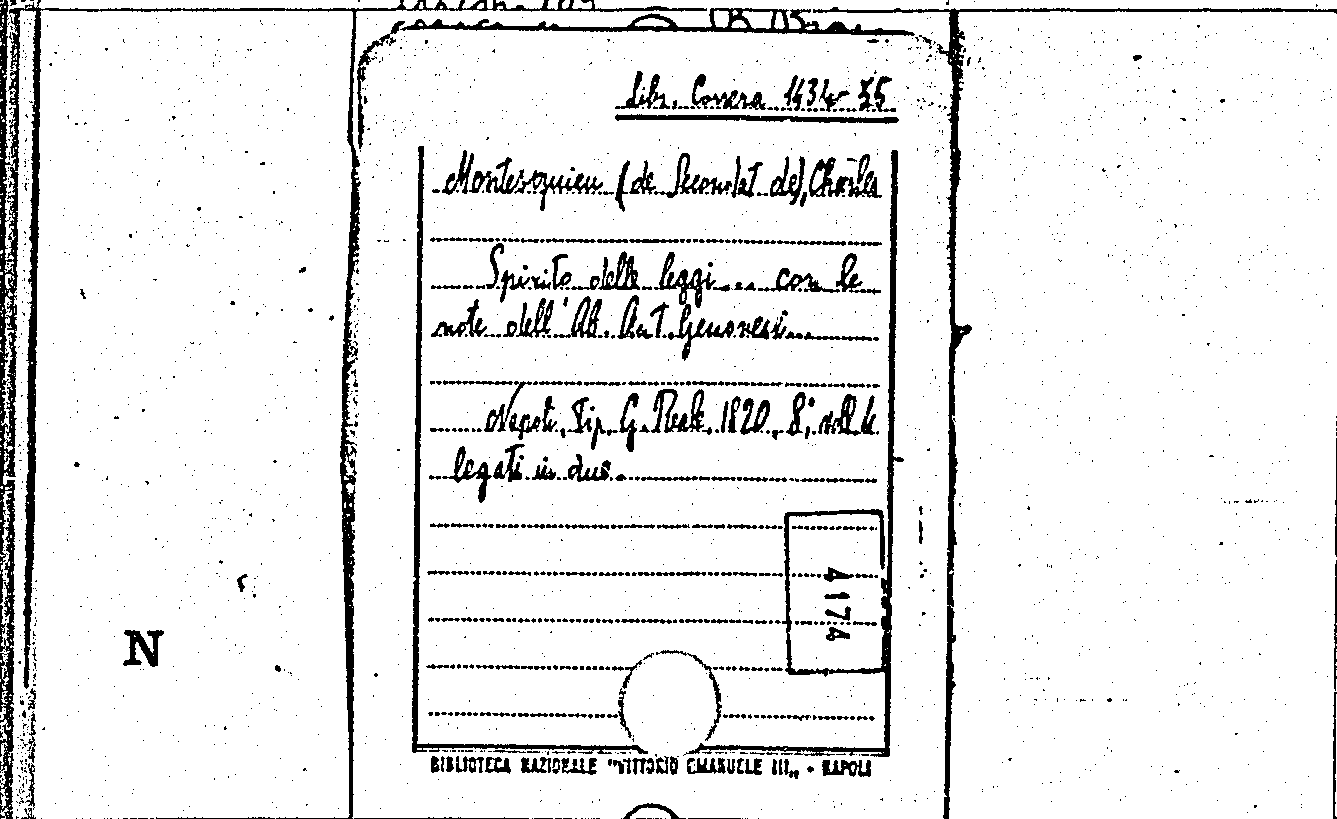 Libr. Correra 1434-35
Montesquieu (de Secondat de), Charles
Spirito delle leggi... con le
note dell'Ab. Ant. Genovesi...
Napoli, Tip. G. Reale, 1820, 8°, voll. 4
legati in due.
4174
N
BIBLIOTECA NAZIONALE "VITTORIO EMANUELE III„ - NAPOLI